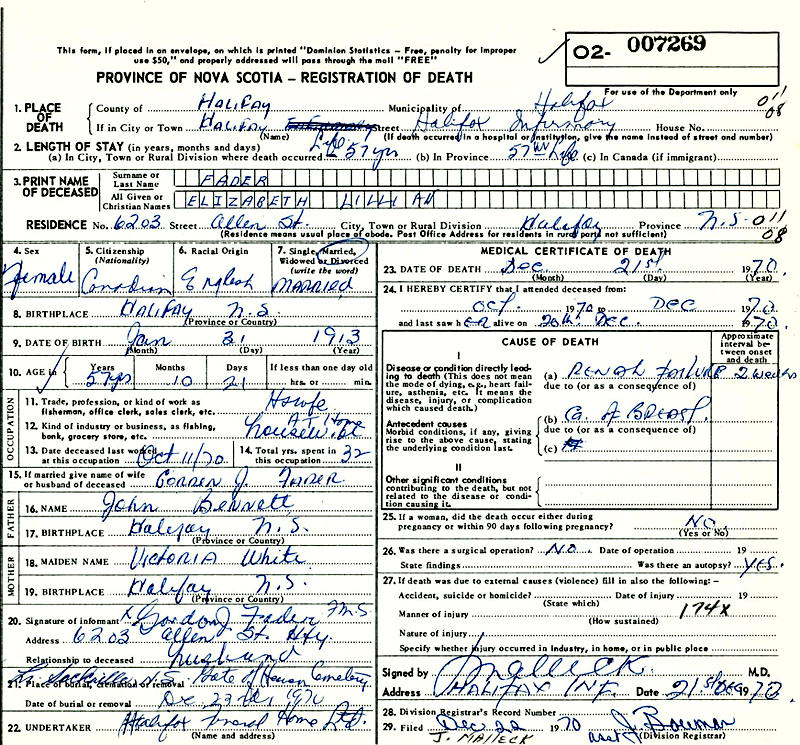 This form, if placed in an envelope, on which is printed "Dominion Statistics – Free, penalty for improper
use $50," and properly addressed will pass through the mail "FREE"
O2- 007269
For use of the Department only
PROVINCE OF NOVA SCOTIA – REGISTRATION OF DEATH
1. PLACE OF DEATH
County of Halifax Municipality of Halifax 011
If in City or Town Halifax Street Halifax Infirmary House No. 08
(Name) (If death occurred in a hospital or institution, give the name instead of street and number)
2. LENGTH OF STAY (in years, months and days)
(a) In City, Town or Rural Division where death occurred Life 57 yrs (b) In Province 57 Life (c) In Canada (if immigrant)
3. PRINT NAME OF DECEASED
Surname or Last Name FADER
All Given or Christian Names ELIZABETH LILLIAN
RESIDENCE No. 6203 Street Allen St. City, Town or Rural Division Halifax Province N.S. 011
(Residence means usual place of abode. Post Office Address for residents in rural parts not sufficient) 08
4. Sex Female
5. Citizenship (Nationality) Canadian
6. Racial Origin English
7. Single, Married, Widowed or Divorced (write the word) MARRIED
8. BIRTHPLACE Halifax N.S.
(Province or Country)
9. DATE OF BIRTH Jan 31 1913
(Month) (Day) (Year)
10. AGE in Years Months Days If less than one day old
57 yrs 10 21 hrs. or min.
OCCUPATION
11. Trade, profession or kind of work as fisherman, office clerk, sales clerk, etc. Hswfe
12. Kind of industry or business, as fishing, bank, grocery store, etc. At Home housewife
13. Date deceased last worked at this occupation Oct 11/70 14. Total yrs. spent in this occupation 32
15. If married give name of wife or husband of deceased Gordon J. Fader
FATHER
16. NAME John Bennett
17. BIRTHPLACE Halifax N.S.
(Province or Country)
MOTHER
18. MAIDEN NAME Victoria White
19. BIRTHPLACE Halifax N.S.
(Province or Country)
20. Signature of informant x Gordon J Fader
Address 6203 Allen St. Hfx.
Relationship to deceased husband
21. Place of burial, cremation or removal Lr. Sackville N.S. Gate of Heaven Cemetery
Date of burial or removal Dec 23rd, 1970
22. UNDERTAKER Halifax Funeral Home Ltd.
(Name and address)
MEDICAL CERTIFICATE OF DEATH
23. DATE OF DEATH Dec. 21st 1970.
(Month) (Day) (Year)
24. I HEREBY CERTIFY that I attended deceased from:
Oct 1970 to Dec 1970
and last saw her alive on 20th Dec. 1970.
CAUSE OF DEATH
Approximate interval between onset and death
I
Disease or condition directly leading to death (This does not mean the mode of dying, e.g., heart failure, asthenia, etc. It means the disease, injury, or complication which caused death.)
(a) RENAL FAILURE 2 weeks
due to (or as a consequence of)
Antecedent causes
Morbid conditions, if any, giving rise to the above cause, stating the underlying condition last.
(b) Ca. of BREAST.
due to (or as a consequence of)
(c)
II
Other significant conditions
contributing to the death, but not related to the disease or condition causing it.
25. If a woman, did the death occur either during pregnancy or within 90 days following pregnancy? No
(Yes or No)
26. Was there a surgical operation? No. Date of operation 19
State findings Was there an autopsy? Yes.
27. If death was due to external causes (violence) fill in also the following: –
Accident, suicide or homicide? Date of injury 19
(State which)
Manner of injury 174x
(How sustained)
Nature of injury
Specify whether injury occurred in Industry, in home, or in public place
Signed by Malleck. M.D.
Address HALIFAX INF. Date 21st Dec 1970.
28. Division Registrar's Record Number
29. Filed Dec 22 1970 J. Bowman
J. MALLECK (Division Registrar)